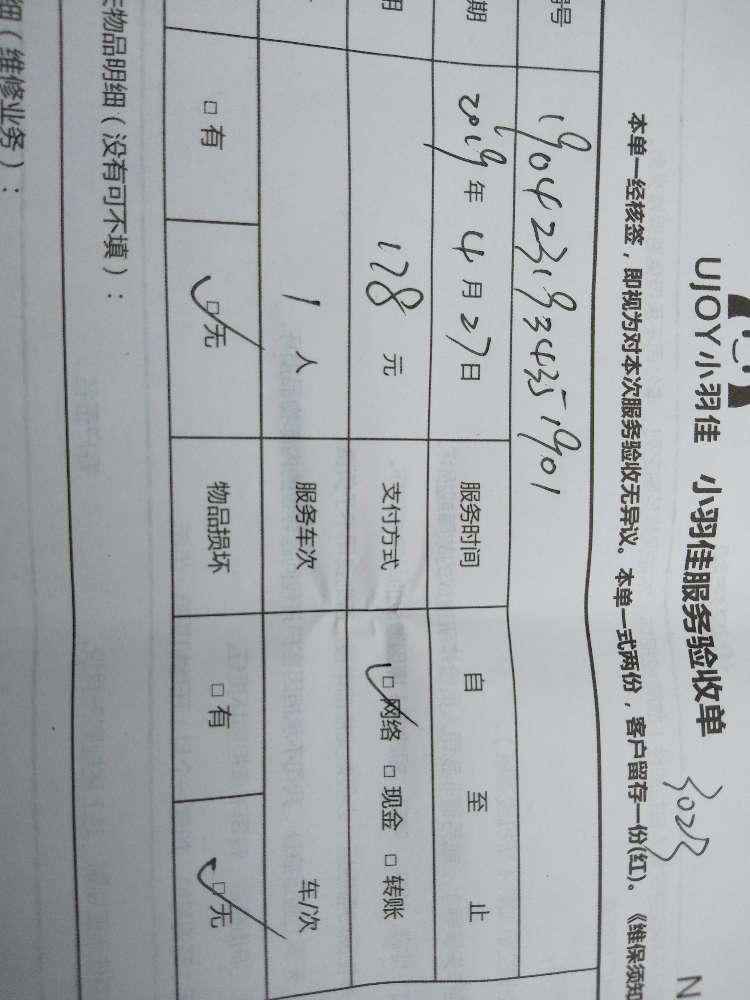 UJOY小羽佳 小羽佳服务验收单
3025
N
本单一经核签，即视为对本次服务验收无异议。本单一式两份，客户留存一份(红)。《维保须知
号 1904231934351901
期 2019年4月27日 服务时间 自 至 止
用 128元 支付方式 ☑网络 □现金 □转账
1人 服务车次 车/次
□有 ☑无 物品损坏 □有 ☑无
物品明细（没有可不填）：
细（维修业务）：